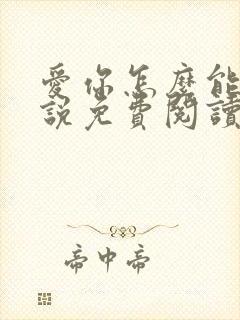 愛你怎麼能
說免費閱讀
帝中帝